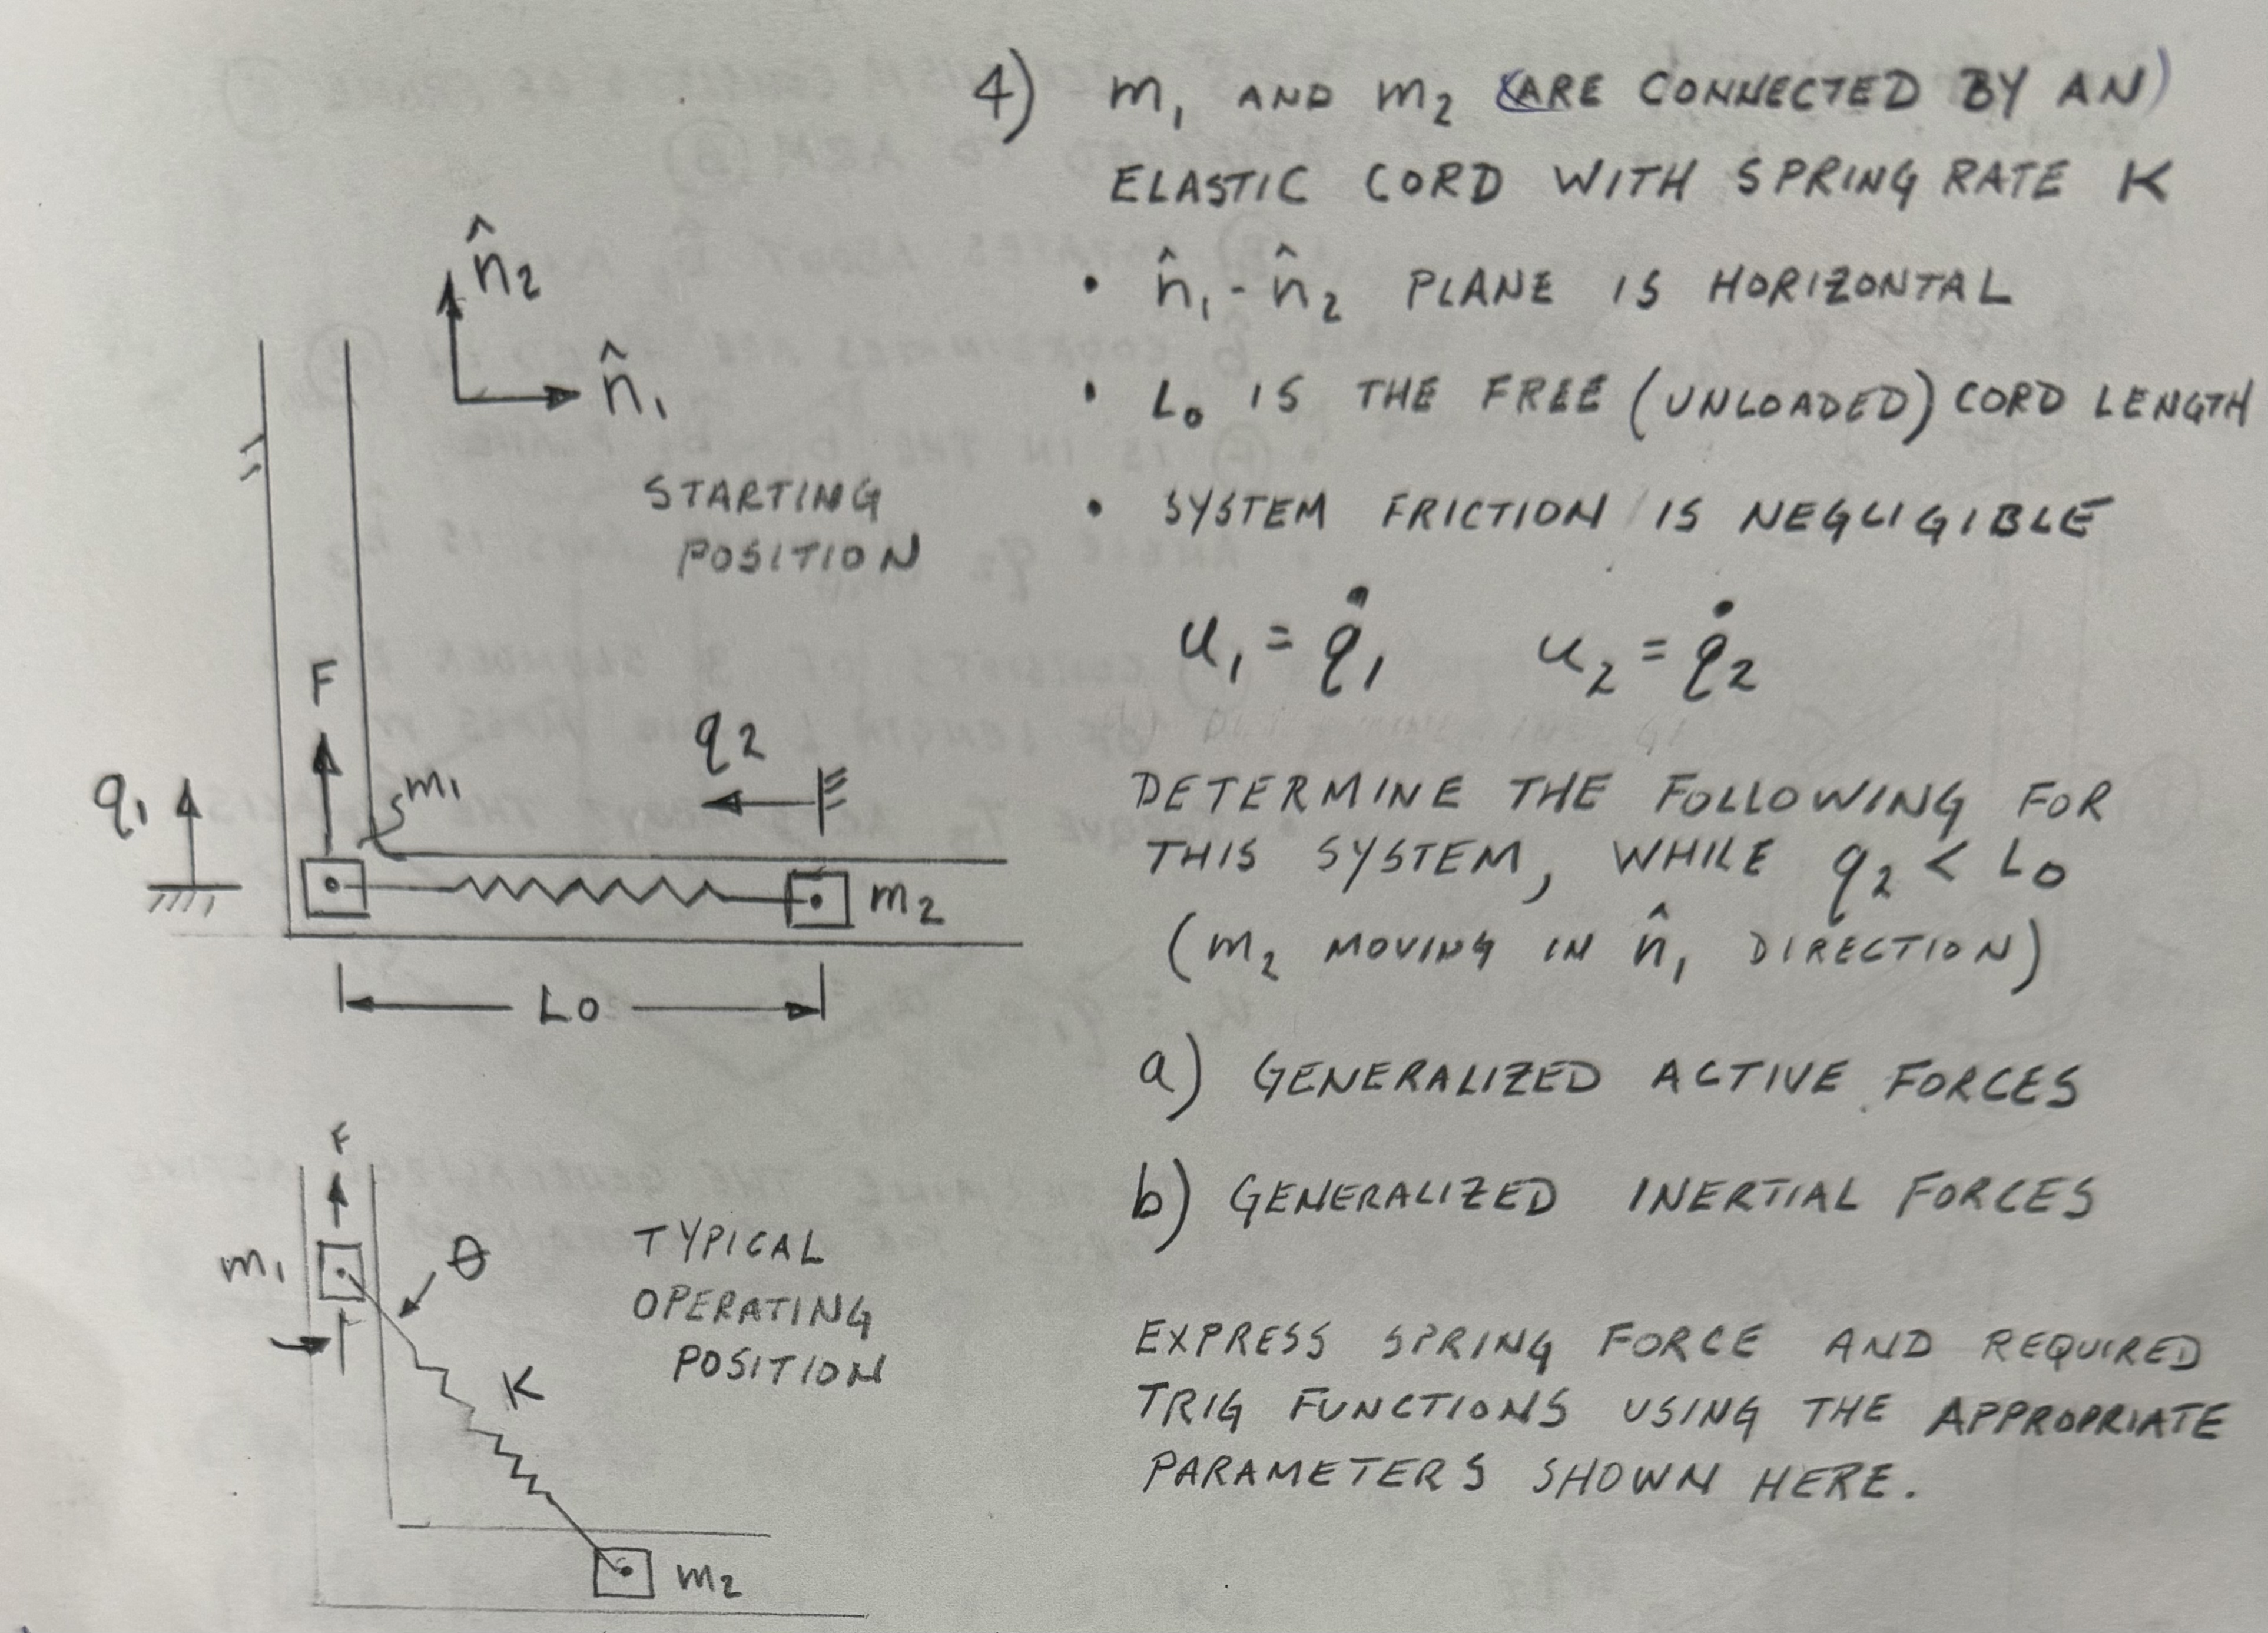 4) m₁ AND m₂ (ARE CONNECTED BY AN)
ELASTIC CORD WITH SPRING RATE K
• n̂₁ - n̂₂ PLANE IS HORIZONTAL
• L₀ IS THE FREE (UNLOADED) CORD LENGTH
• SYSTEM FRICTION IS NEGLIGIBLE
u₁ = q̇₁ u₂ = q̇₂
DETERMINE THE FOLLOWING FOR
THIS SYSTEM, WHILE q₂ < L₀
(m₂ MOVING IN n̂₁ DIRECTION)
a) GENERALIZED ACTIVE FORCES
b) GENERALIZED INERTIAL FORCES
EXPRESS SPRING FORCE AND REQUIRED
TRIG FUNCTIONS USING THE APPROPRIATE
PARAMETERS SHOWN HERE.
n̂₂
n̂₁
STARTING
POSITION
F
q₂
q₁
m₁
m₂
L₀
F
m₁
θ
TYPICAL
OPERATING
POSITION
K
m₂